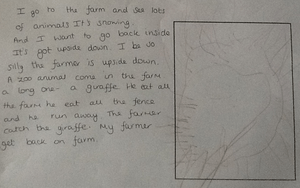 I go to the farm and see lots
of animals It's snowing.
And I want to go back inside
It's got upside down. I be so
silly the farmer is upside down
A zoo animal come in the farm
a long one- a giraffe. He eat all
the farm he eat all the fence
and he run away. The farmer
catch the giraffe. My farmer
get back on farm.